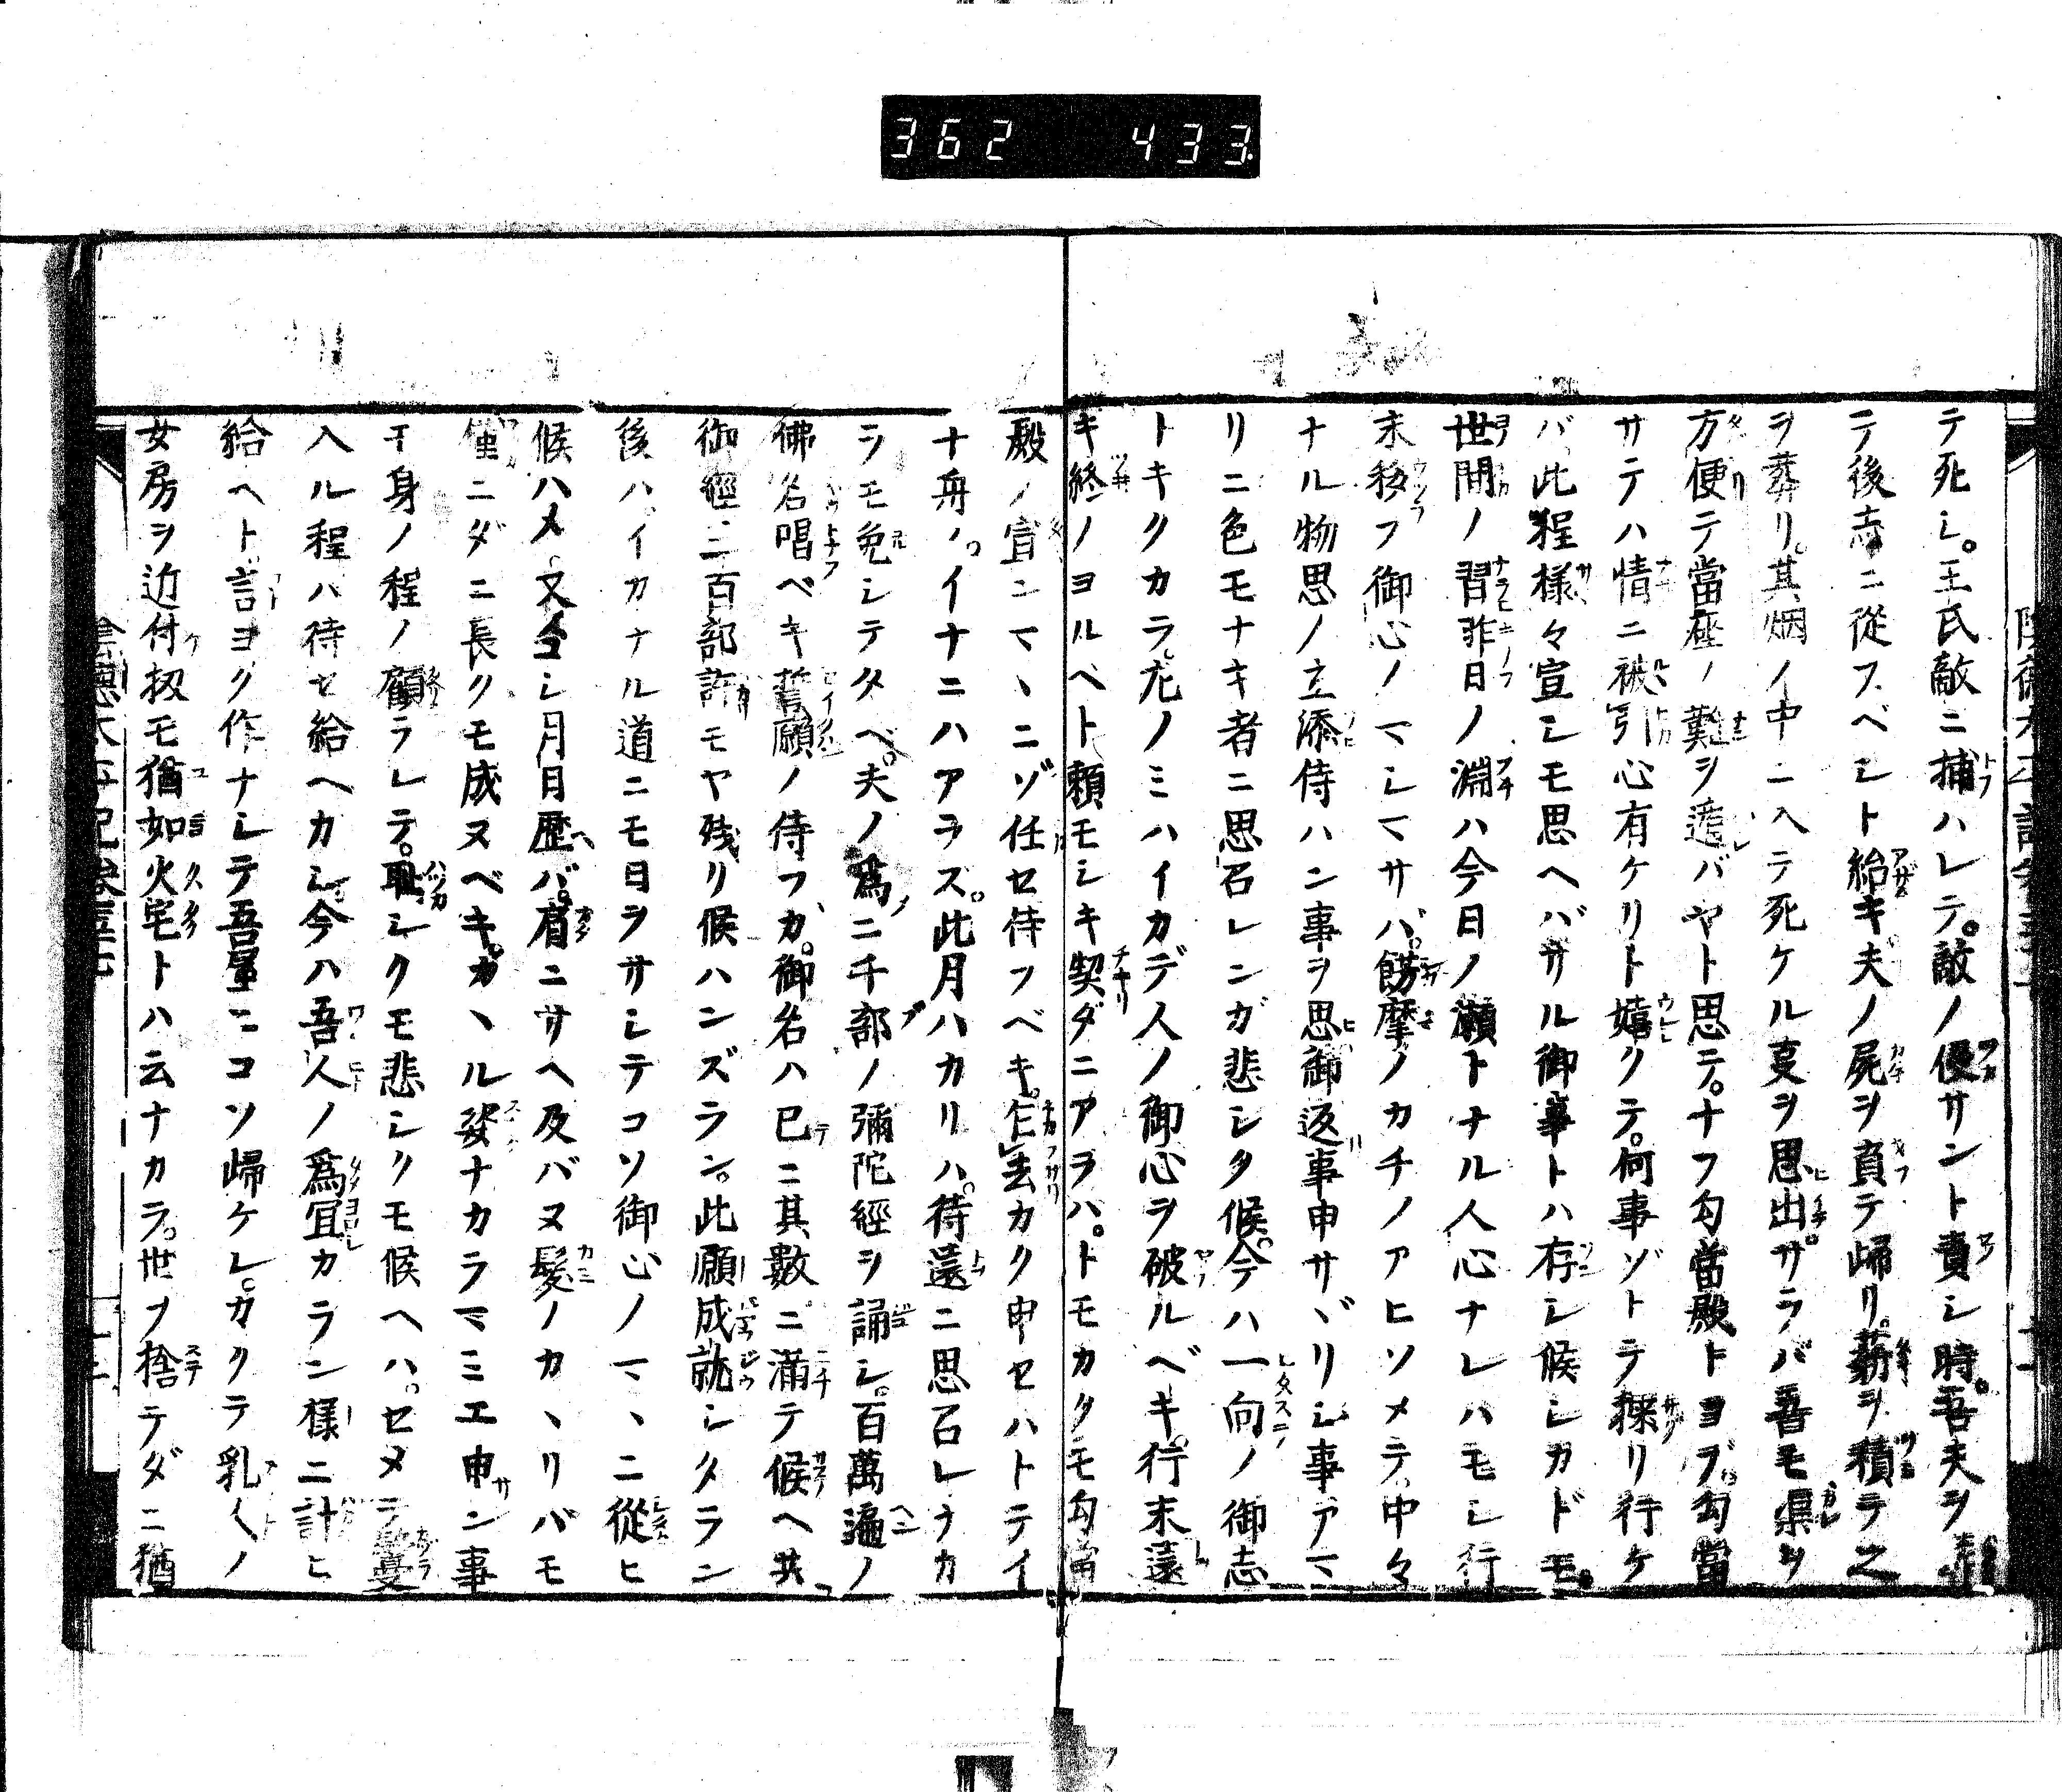 362 433
テ死シ。王氏敵ニ捕ハレテ。敵ノ侵サント責シ時。吾夫ヲ
テ後志ニ從フベシト紿キ夫ノ屍ヲ負テ歸リ。薪ヲ積テ之
ヲ葬リ。其烟ノ中ニ入テ死ケル事ヲ思出。サラバ吾モ渠ヲ
方便テ當座ノ難ヲ遁バヤト思テ。ナフ勾當殿トヨヲ。勾當
サテハ情ニ被引心有ケリト嬉クテ。何事ゾトテ探リ行ケ
バ此程樣々宣シモ思ヘバサル御事トハ存シ候シカドモ。
世間ノ習昨日ノ淵ハ今日ノ瀬トナル人心ナレハモシ行
末移フ御心ノマシマサバ。餝摩ノカチノアヒソメテ。中々
ナル物思ノ立添侍ハン事ヲ思御返事申サヾリシ事アマ
リニ色モナキ者ニ思召レンガ悲シタ候。今ハ一向ノ御志
トキクカラ。尤ノミハイカデ人ノ御心ヲ破ルベキ。行末遠
キ終ノヨルベト頼モシキ契ダニアラハ。トモカクモ勾當
殿ノ宣ンマヽニゾ任セ侍フベキ。乍去カク申セハトテイ
ナ舟ノ。イナニハアラス。此月ハカリハ。待遠ニ思召レナカ
ラモ免シテタベ。夫ノ爲ニ千部ノ彌陀經ヲ誦シ。百萬遍ノ
佛名唱ベキ誓願ノ侍フガ。御名ハ已ニ其數ニ滿テ候ヘ共
御經二百部許モヤ殘リ候ハンズラン。此願成就シタラン
後ハ。イカナル道ニモ日ヲサシテコソ御心ノマヽニ從ヒ
候ハメ。又今コシ月日歴バ。肩ニサヘ及バヌ髮ノカヽリバモ
僅ニダニ長クモ成ヌベキ。カヽル姿ナカラマミエ申ン事
モ身ノ程ノ顧ラレテ。耻シクモ悲シクモ候ヘハ。セメテ鬘
入ル程ハ待セ給ヘカシ。今ハ吾人ノ爲宜カラン樣ニ計ヒ
給ヘト。言ヨク作ナシテ吾屋ニコソ歸ケレ。カクテ乳人ノ
女房ヲ近付扨モ猶如火宅トハ云ナカラ。世ヲ捨テダニ猶